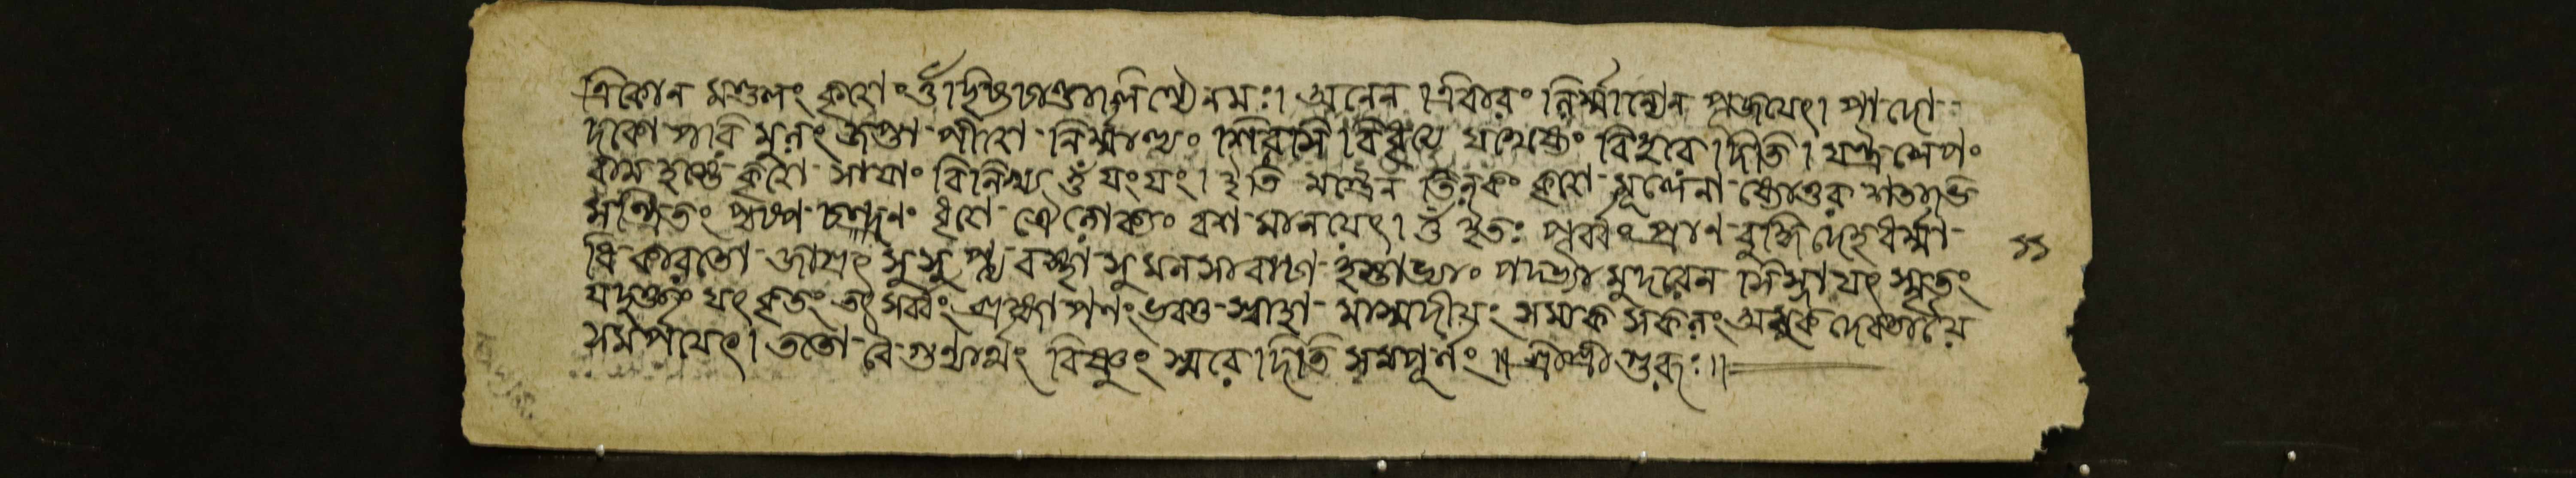 ত্রিকোন মণ্ডলং কৃত্বা ওঁ উচ্ছিষ্টচাণ্ডালিন্যৈ নমঃ। অনেন ত্রিবারং নির্ম্মাল্যেন পূজয়েৎ। পাদো-
দকো পরি মূলং জপ্ত্বা পীত্বা নির্ম্মাল্যং শিরসি বিধৃত্য যথেষ্টং বিহরে দিতি। যন্ত্র লেপং
বাম হস্তে কৃত্বা মায়াং বিলিখ্য ওঁ যংযং। ইতি মন্ত্রেন তিলকং কৃত্বা মূলেনাষ্টোত্তর শতাভি
মন্ত্রিতং পুষ্প চন্দনং ধৃত্বা ত্রৈলোক্যং বশ মানয়েৎ। ওঁ ইতঃ পূর্ব্বং প্রাণ বুদ্ধি দেহ ধর্ম্মা-
ধি কারতো জাগ্রৎ সুসুপ্ত্য বস্থা সু মনসা বাচা হস্তাভ্যাং পদ্ভ্যা মুদরেন শিস্না যৎ স্মৃতং
যদুক্তং যৎ কৃতং তৎ সর্ব্বং ব্রহ্মার্পণং ভবতু স্বাহা মাম্মদীয়ং সমাক সকলং অমুক দেবতায়ৈ
সমর্পয়েৎ। ততো বৈ গুণ্যার্থং বিষ্ণুং স্মরে দিতি সম্পূর্নং॥ শ্রীশ্রীগুরুঃ॥
১১